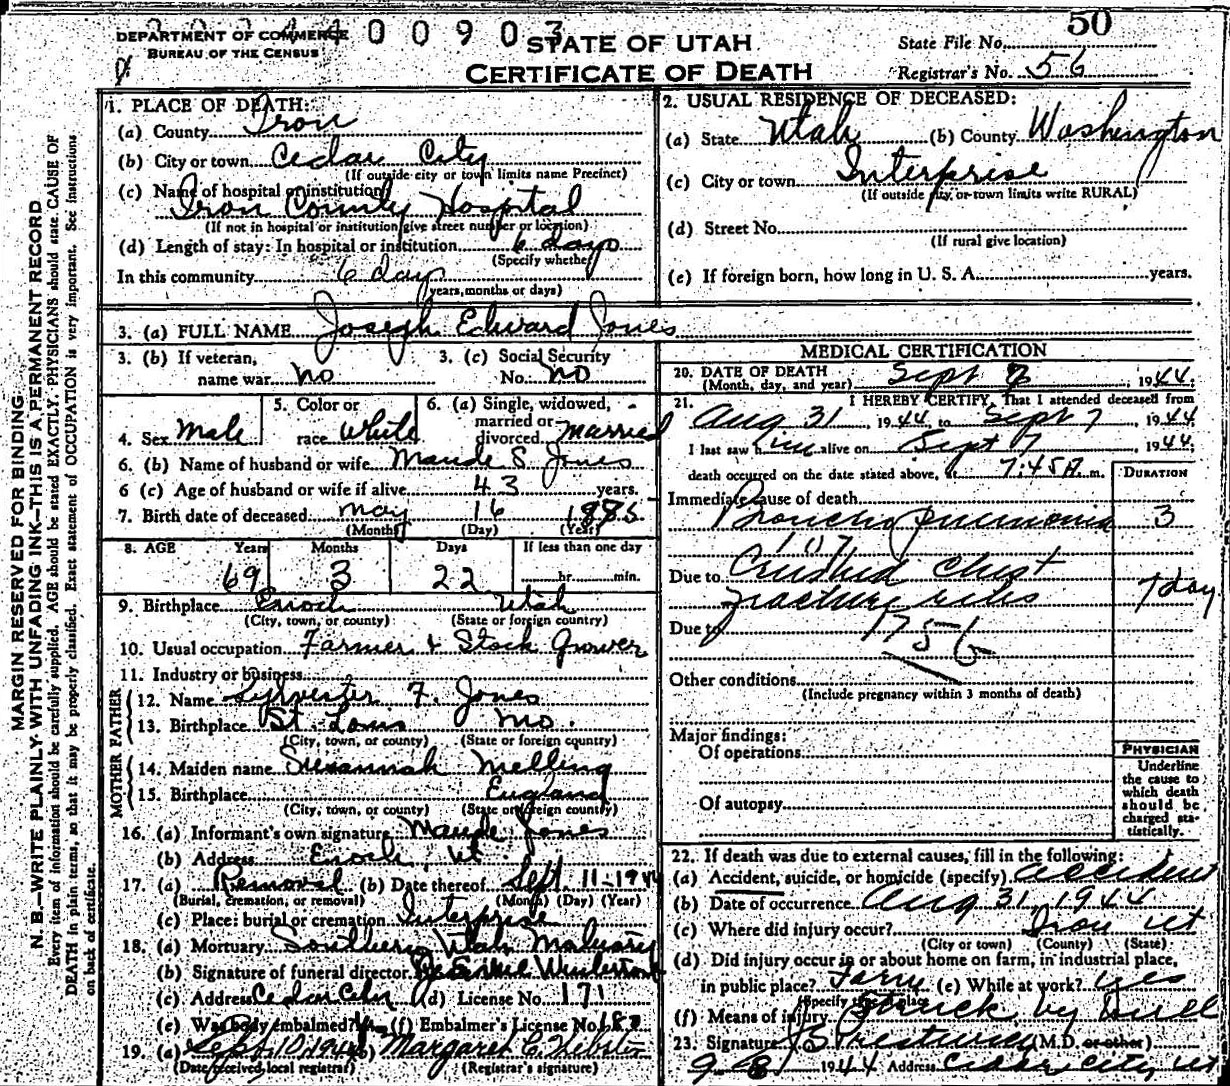 DEPARTMENT OF COMMERCE
BUREAU OF THE CENSUS
STATE OF UTAH
CERTIFICATE OF DEATH
State File No. 50
Registrar's No. 56
MARGIN RESERVED FOR BINDING
N. B.—WRITE PLAINLY, WITH UNFADING INK—THIS IS A PERMANENT RECORD
Every item of information should be carefully supplied. AGE should be stated EXACTLY. PHYSICIANS should state CAUSE OF
DEATH in plain terms, so that it may be properly classified. Exact statement of OCCUPATION is very important. See instructions
on back of certificate.
1. PLACE OF DEATH:
(a) County Iron
(b) City or town Cedar City
(If outside city or town limits name Precinct)
(c) Name of hospital or institution
Iron County Hospital
(If not in hospital or institution give street number or location)
(d) Length of stay: In hospital or institution 6 days
(Specify whether
In this community 6 days
years, months or days)
2. USUAL RESIDENCE OF DECEASED:
(a) State Utah (b) County Washington
(c) City or town Interprise
(If outside city or town limits write RURAL)
(d) Street No.
(If rural give location)
(e) If foreign born, how long in U. S. A. years.
3. (a) FULL NAME Joseph Edward Jones
3. (b) If veteran, name war no
3. (c) Social Security No. no
4. Sex Male
5. Color or race White
6. (a) Single, widowed, married or divorced Married
6. (b) Name of husband or wife Maude S. Jones
6 (c) Age of husband or wife if alive 43 years.
7. Birth date of deceased May 16 1885
(Month) (Day) (Year)
8. AGE Years Months Days If less than one day
69 3 22 hr. min.
9. Birthplace Enoch Utah
(City, town, or county) (State or foreign country)
10. Usual occupation Farmer & Stock Grower
11. Industry or business
FATHER
12. Name Sylvester F. Jones
13. Birthplace St. Louis Mo.
(City, town, or county) (State or foreign country)
MOTHER
14. Maiden name Susannah Melling
15. Birthplace England
(City, town, or county) (State or foreign country)
16. (a) Informant's own signature Maude Jones
(b) Address Enoch, Ut.
17. (a) Removal (b) Date thereof Sept. 11-1944
(Burial, cremation, or removal) (Month) (Day) (Year)
(c) Place: burial or cremation Interprise
18. (a) Mortuary Southern Utah Mortuary
(b) Signature of funeral director
(c) Address Cedar City (d) License No. 171
(e) Was body embalmed? Yes (f) Embalmer's License No.
19. (a) Sept. 10, 1944 (b) Margaret C. Webster
(Date received local registrar) (Registrar's signature)
MEDICAL CERTIFICATION
20. DATE OF DEATH
(Month, day, and year) Sept 7, 1944
21. I HEREBY CERTIFY, That I attended deceased from
Aug 31, 1944, to Sept 7, 1944
I last saw him alive on Sept 7, 1944
death occurred on the date stated above, at 7:45 A. m.
DURATION
Immediate cause of death
Broncho pneumonia 3
107
Due to Crushed Chest
fracture ribs 7 day
Due to 175 6
Other conditions
(Include pregnancy within 3 months of death)
Major findings:
Of operations
Of autopsy
PHYSICIAN
Underline
the cause to
which death
should be
charged sta-
tistically.
22. If death was due to external causes, fill in the following:
(a) Accident, suicide, or homicide (specify) Accident
(b) Date of occurrence Aug 31, 1944
(c) Where did injury occur? Iron Ut
(City or town) (County) (State)
(d) Did injury occur in or about home on farm, in industrial place,
in public place? Farm (e) While at work? yes
(Specify type of place)
(f) Means of injury Struck by bull
23. Signature (M.D. or other)
9-8 1944 Address Cedar City Ut